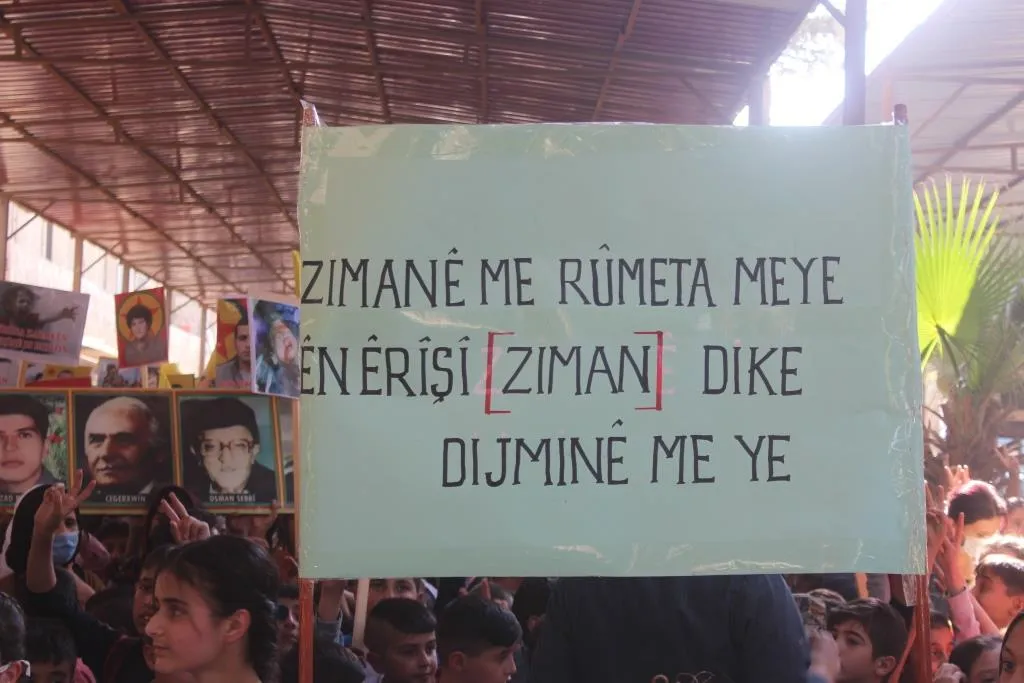 ZIMANÊ ME RÛMETA MEYE
ÊN ÊRÎŞÎ [ZIMAN] DIKE
DIJMINÊ ME YE
CEGERXWÎN
OSMAN SEBRÎ